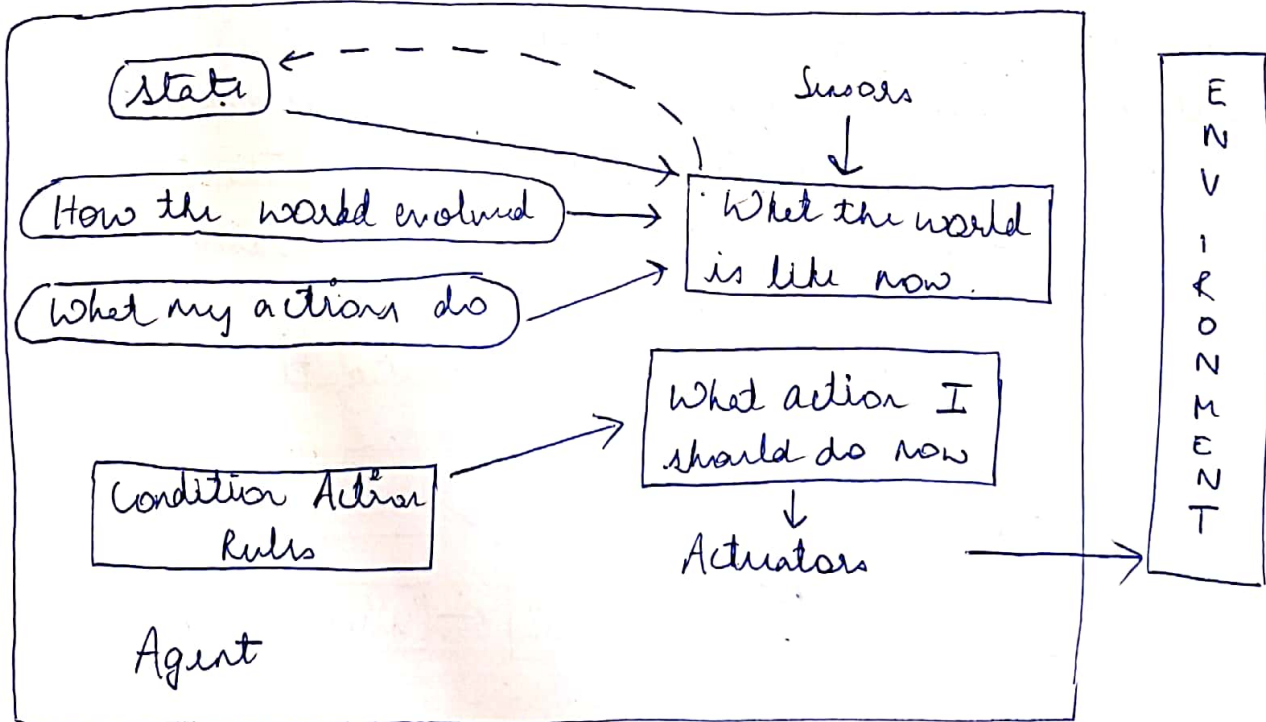 State
Sensors
How the world evolved
What the world
is like now.
What my actions do
What action I
should do now
Condition Action
Rules
Actuators
Agent
ENVIRONMENT